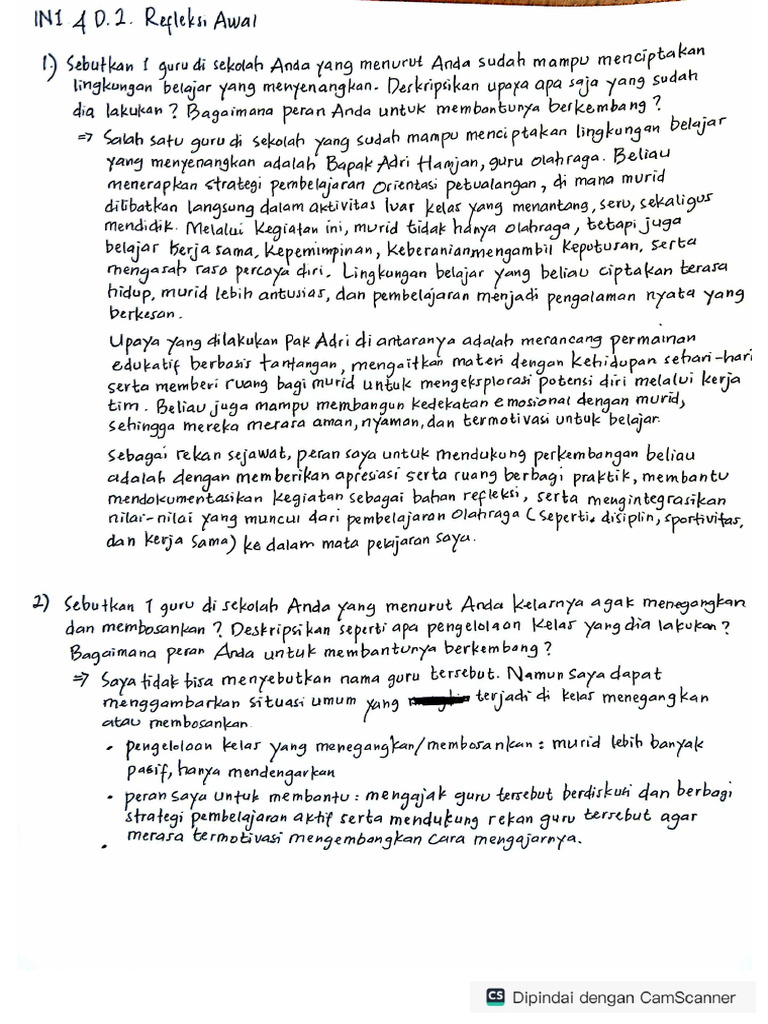 IN1 4 D.2. Refleksi Awal
1.) Sebutkan 1 guru di sekolah Anda yang menurut Anda sudah mampu menciptakan
lingkungan belajar yang menyenangkan. Deskripsikan upaya apa saja yang sudah
dia lakukan? Bagaimana peran Anda untuk membantunya berkembang?
⇒ Salah satu guru di sekolah yang sudah mampu menciptakan lingkungan belajar
yang menyenangkan adalah Bapak Adri Hamjan, guru olahraga. Beliau
menerapkan strategi pembelajaran orientasi petualangan, di mana murid
dilibatkan langsung dalam aktivitas luar kelas yang menantang, seru, sekaligus
mendidik. Melalui kegiatan ini, murid tidak hanya olahraga, tetapi juga
belajar kerja sama, kepemimpinan, keberanian mengambil keputusan, serta
mengasah rasa percaya diri. Lingkungan belajar yang beliau ciptakan terasa
hidup, murid lebih antusias, dan pembelajaran menjadi pengalaman nyata yang
berkesan.
Upaya yang dilakukan Pak Adri di antaranya adalah merancang permainan
edukatif berbasis tantangan, mengaitkan materi dengan kehidupan sehari-hari
serta memberi ruang bagi murid untuk mengeksplorasi potensi diri melalui kerja
tim. Beliau juga mampu membangun kedekatan emosional dengan murid,
sehingga mereka merasa aman, nyaman, dan termotivasi untuk belajar.
Sebagai rekan sejawat, peran saya untuk mendukung perkembangan beliau
adalah dengan memberikan apresiasi serta ruang berbagi praktik, membantu
mendokumentasikan kegiatan sebagai bahan refleksi, serta mengintegrasikan
nilai-nilai yang muncul dari pembelajaran olahraga (seperti disiplin, sportivitas,
dan kerja sama) ke dalam mata pelajaran saya.
2) Sebutkan 1 guru di sekolah Anda yang menurut Anda kelasnya agak menegangkan
dan membosankan? Deskripsikan seperti apa pengelolaan kelas yang dia lakukan?
Bagaimana peran Anda untuk membantunya berkembang?
⇒ Saya tidak bisa menyebutkan nama guru tersebut. Namun saya dapat
menggambarkan situasi umum yang terjadi di kelas menegangkan
atau membosankan.
• pengelolaan kelas yang menegangkan/membosankan: murid lebih banyak
pasif, hanya mendengarkan
• peran saya untuk membantu: mengajak guru tersebut berdiskusi dan berbagi
strategi pembelajaran aktif serta mendukung rekan guru tersebut agar
merasa termotivasi mengembangkan cara mengajarnya.
CS Dipindai dengan CamScanner